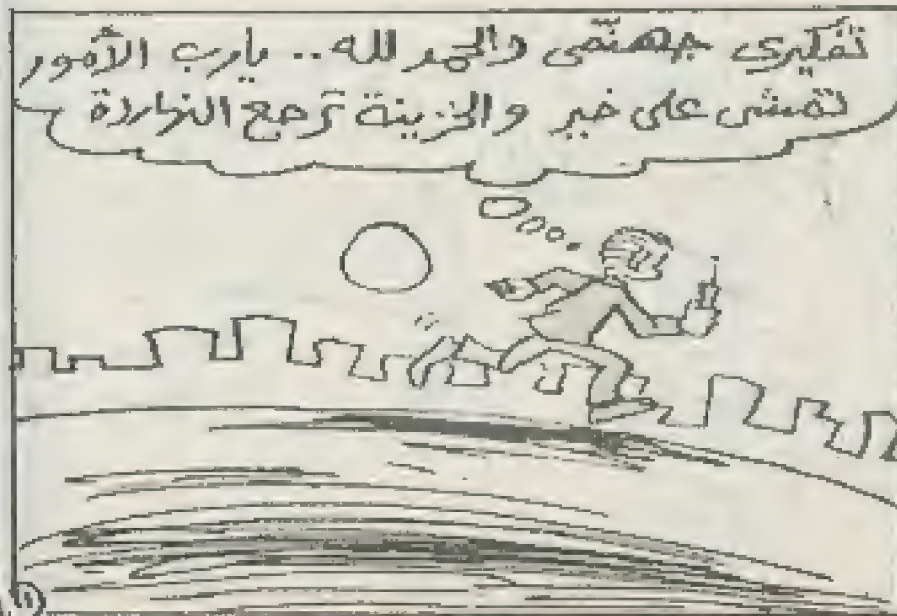 تفكيرى جهنمّى والحمد لله .. يارب الأمور
تمشى على خير والخزينة ترجع النهاردة